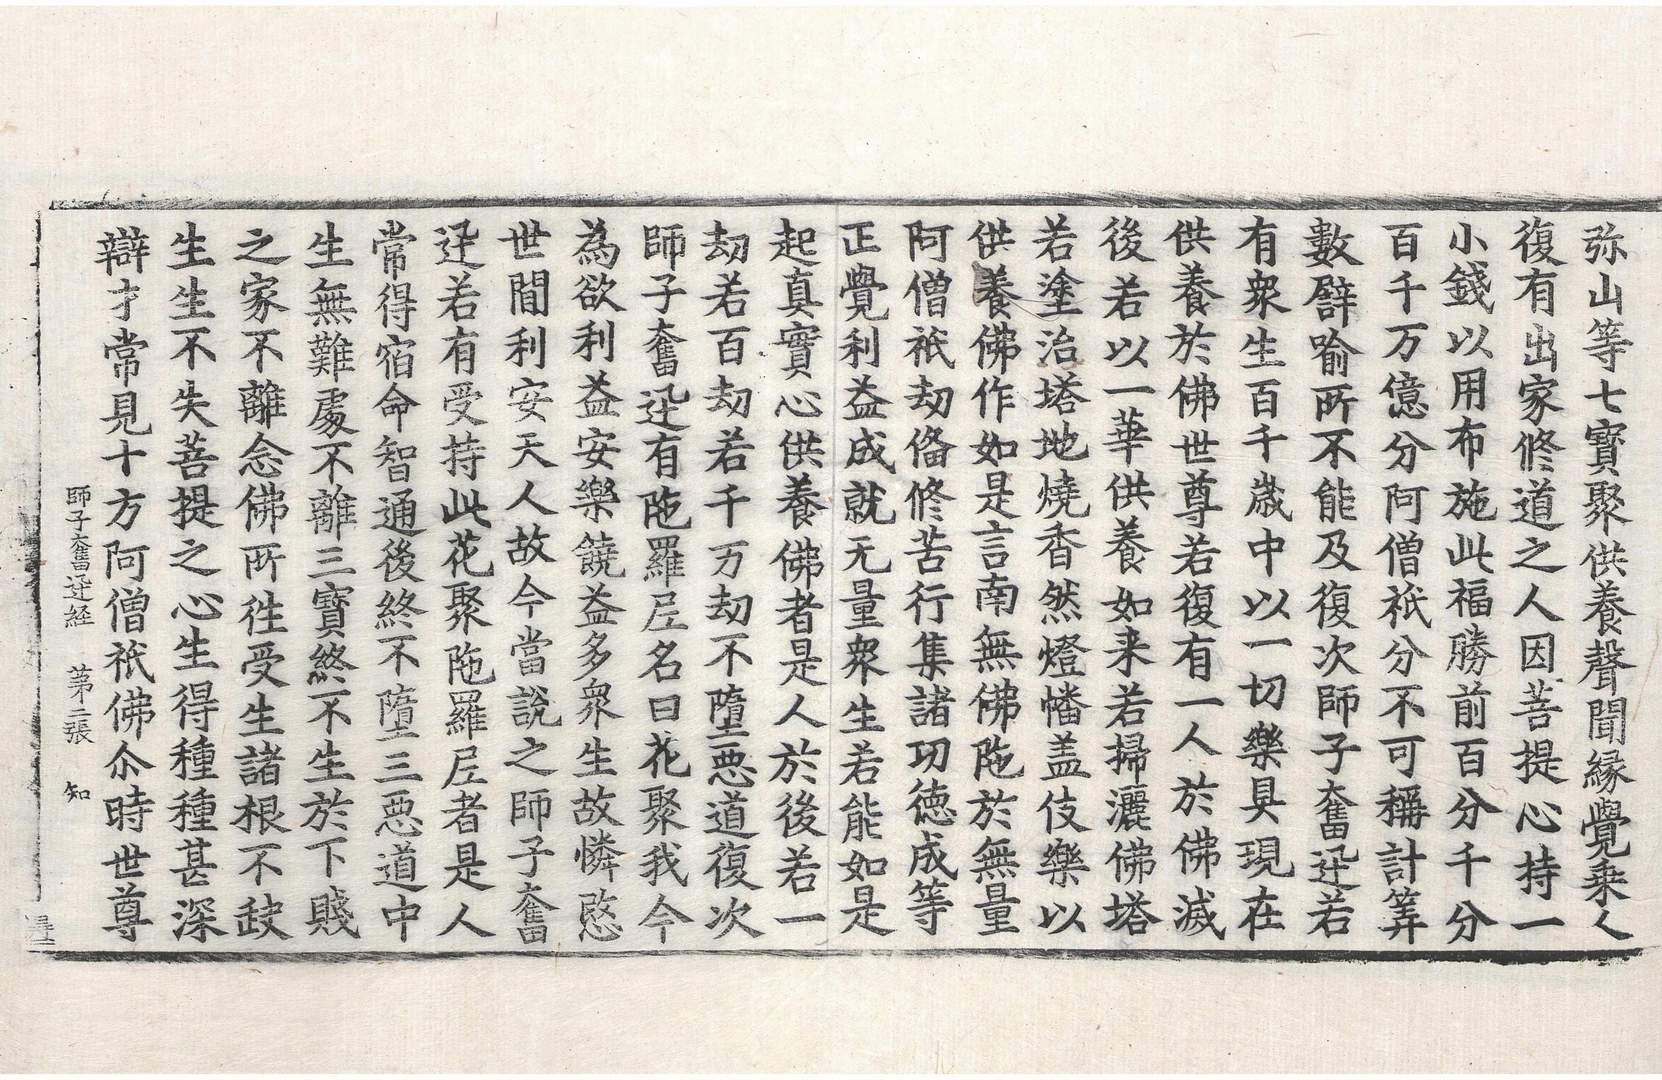 弥山等七寳聚供養聲聞縁覺乗人
復有出家修道之人因菩提心持一
小錢以用布施此福勝前百分千分
百千万億分阿僧祇分不可稱計筭
數譬喻所不能及復次師子奮迅若
有衆生百千歲中以一切樂具現在
供養於佛世尊若復有一人於佛滅
後若以一華供養如来若掃灑佛塔
若塗治塔地燒香然燈幡盖伎樂以
供養佛作如是言南無佛陁於無量
阿僧祇劫俻修苦行集諸功徳成等
正覺利益成就无量衆生若能如是
起真實心供養佛者是人於後若一
劫若百劫若千万劫不墮惡道復次
師子奮迅有陁羅尼名曰花聚我今
為欲利益安樂饒益多衆生故憐愍
世間利安天人故今當說之師子奮
迅若有受持此花聚陁羅尼者是人
常得宿命智通後終不墮三惡道中
生無難處不離三寳終不生於下賤
之家不離念佛所徃受生諸根不缺
生生不失菩提之心生得種種甚深
辯才常見十方阿僧祇佛尒時世尊
師子奮迅経 第二張 知